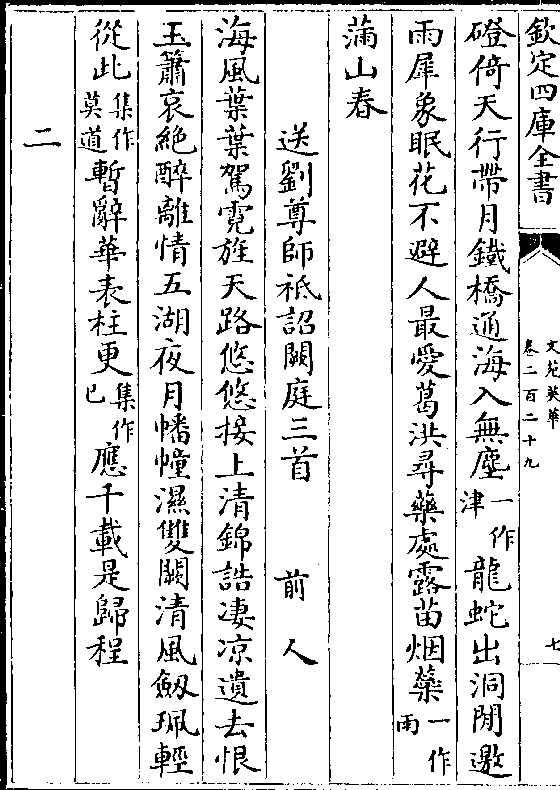 欽定四庫全書
文苑英華
卷二百二十九
七
磴倚天行帶月鐵橋通海入無塵一作津龍蛇出洞閒邀
雨犀象眠花不避人最愛葛洪尋藥處露苗烟蘂一作雨
蒲山春
送劉尊師祗詔闕庭三首 前人
海風葉葉駕霓旌天路悠悠接上清錦誥淒凉遺去恨
玉簫哀絶醉離情五湖夜月幡幢濕雙闕清風劒珮輕
從此集作莫道暫辭華表柱更集作已應千載是歸程
二